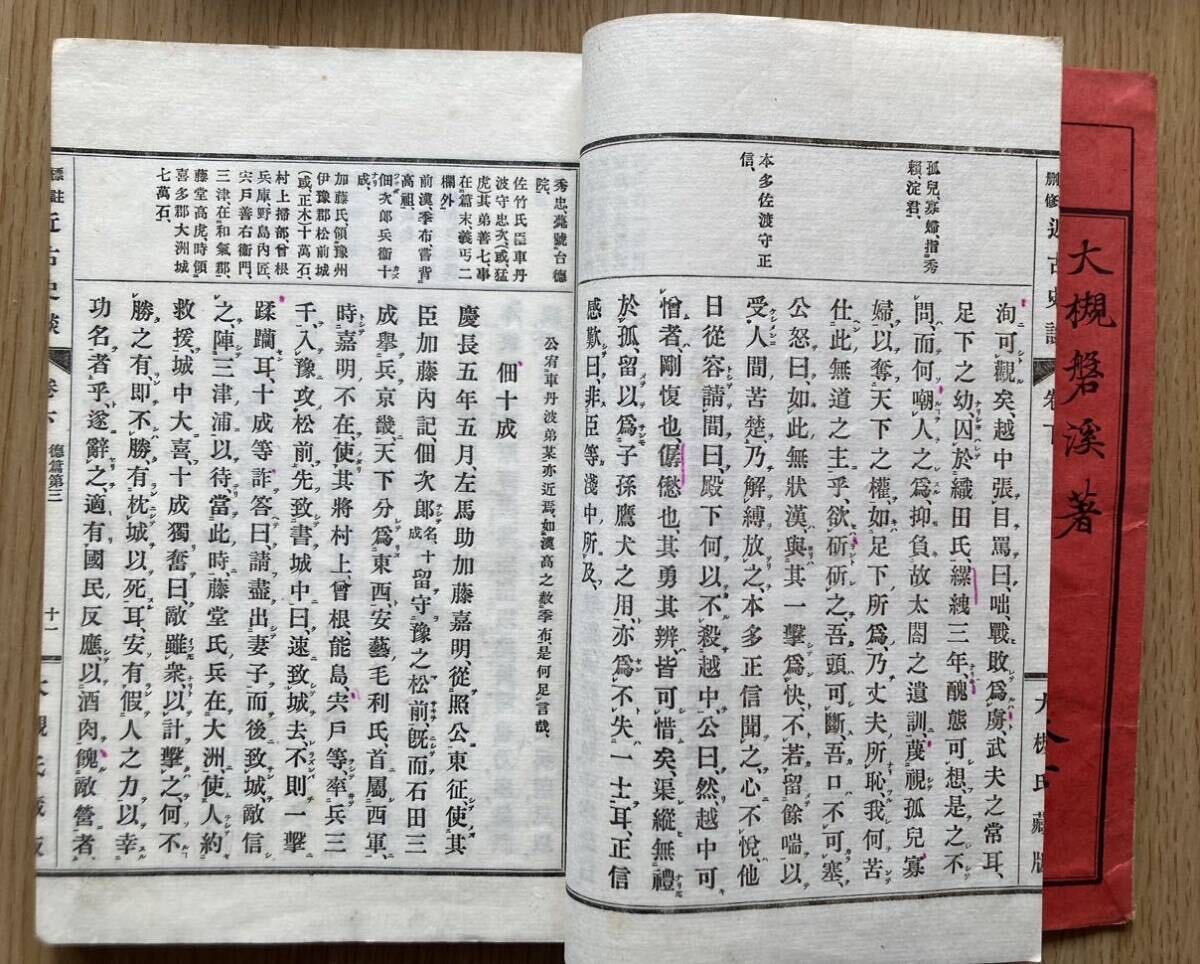 大槻磐溪著
刪修近古史談
卷下
大槻氏藏版
孤兒、寡婦、指秀
賴、淀君、
本多佐渡守正
信、
洵可觀矣、越中張目罵曰、咄、戰敗爲虜、武夫之常耳、
足下之幼、囚於織田氏、縲絏三年、醜態可想、是之不
問、而何嘲人之爲、抑負故太閤之遺訓、蔑視孤兒寡
婦、以奪天下之權、如足下所爲、乃丈夫所恥、我何苦
仕此無道之主乎、欲斫斫之、吾頭可斷、吾口不可塞、
公怒曰、如此無狀漢、與其一擊爲快、不若留餘喘以
受人間苦楚、乃解縛放之、本多正信聞之、心不悅、他
日從容請間曰、殿下何以不殺越中、公曰、然、越中可
憎者、剛愎也、僝僽也、其勇其辨、皆可惜矣、渠縱無禮
於孤、留以爲子孫鷹犬之用、亦爲不失一士耳、正信
感歎曰、非臣等淺中所及、
秀忠、薨號台德
院、
佐竹氏臣車丹
波守忠次、(或猛
虎)其弟善七、事
在篇末義丐二
欄外
前漢、季布嘗背
高祖、
佃次郎兵衞十
成、
加藤氏領豫州
伊豫郡松前城
(或正木)十萬石、
村上掃部、曾根
兵庫、野島內匠、
宍戶善右衞門、
三津在和氣郡、
藤堂高虎、時領
喜多郡大洲城
七萬石、
公宥車丹波弟某亦近焉、如漢高之赦季布是何足言哉、
佃十成
慶長五年五月、左馬助加藤嘉明、從照公東征、使其
臣加藤內記、佃次郞名十成留守豫之松前、旣而石田三
成擧兵京畿、天下分爲東西、安藝毛利氏、首屬西軍、
時嘉明不在、使其將村上、曾根、能島、宍戶等、率兵三
千、入豫攻松前、先致書城中曰、速致城去、不則一擊
蹂躪耳、十成等詐答曰、請盡出妻子而後致城、敵信
之、陣三津浦以待、當此時、藤堂氏兵在大洲、使人約
救援、城中大喜、十成獨奮曰、敵雖衆、以計擊之、何不
勝之有、卽不勝、有枕城以死耳、安有假人之力以幸
功名者乎、遂辭之、適有國民反應、以酒肉餽敵營者、
標註近古史談
卷下
德篇第三
十一
大槻氏藏版